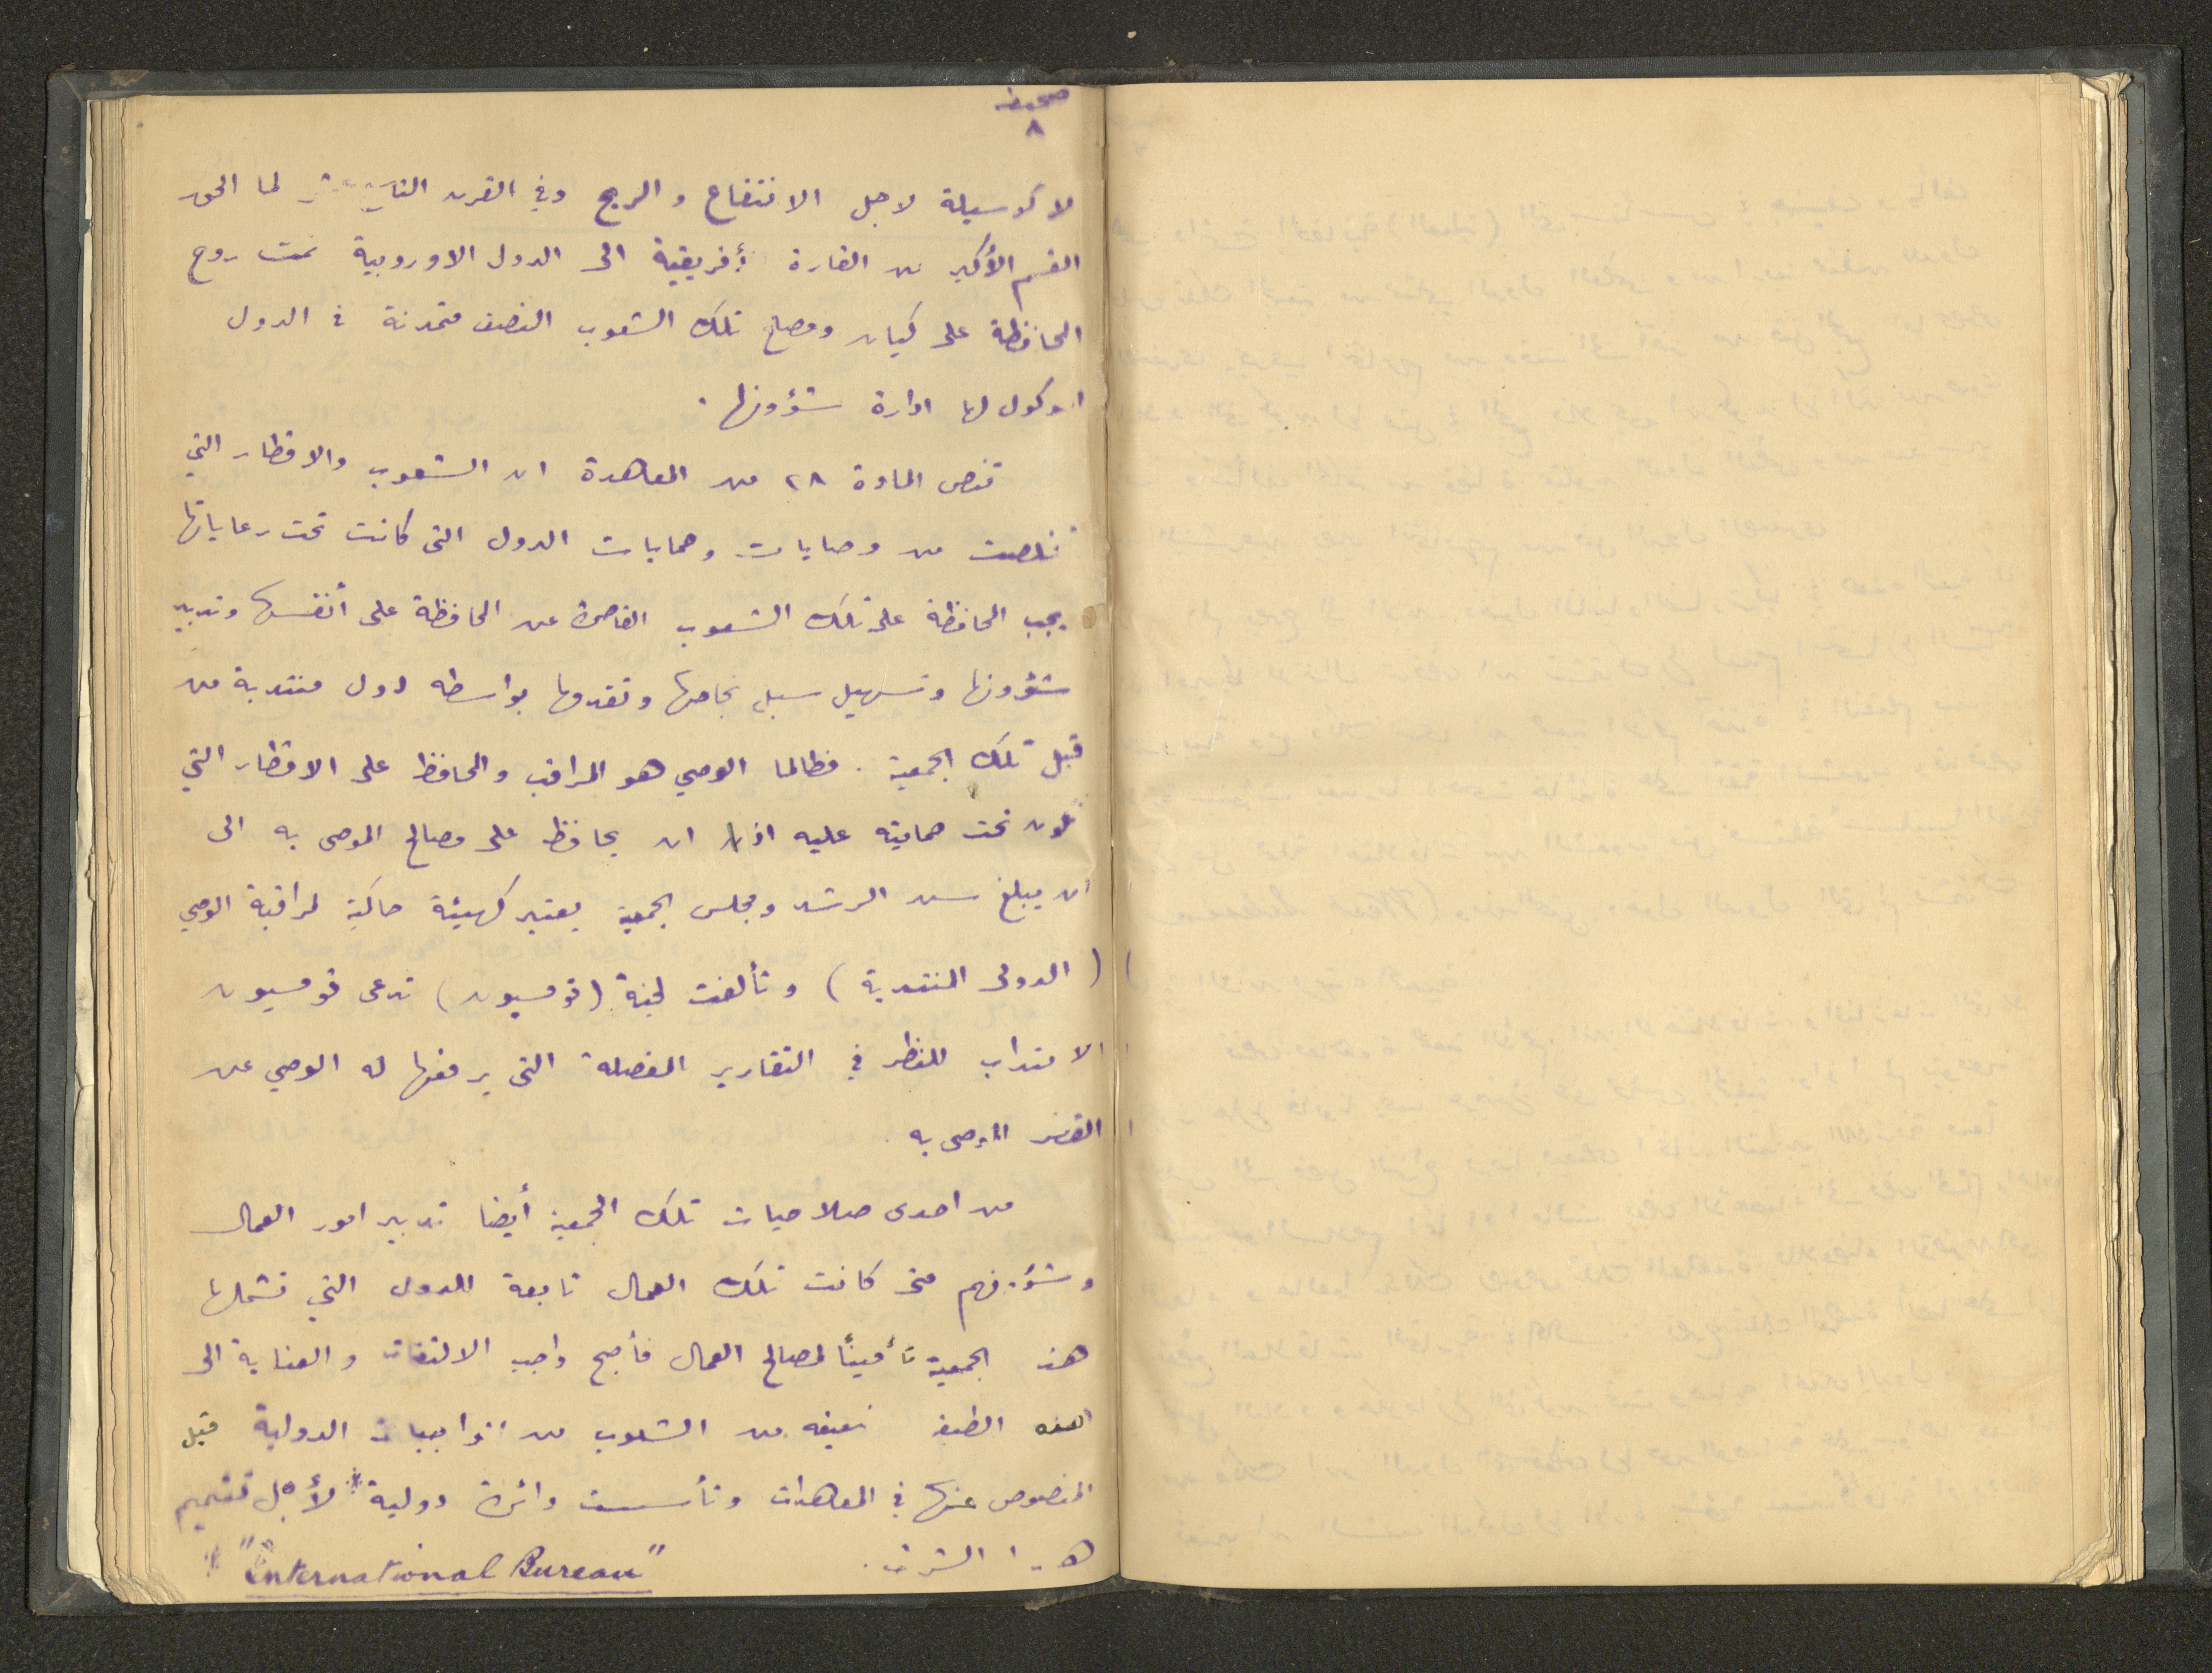 صحيفة
٨
لا كوسيلة لاجل الانتفاع والربح وفي القرن التاسع عشر لما الحق
القسم الأكبر من القارة أفريقية الى الدول الاوروبية نمت روح
المحافظة على كيان ومصلح تلك الشعوب النصف متمدنة في الدول
الموكول لها ادارة شؤونها .
تنص المادة ٢٨ من المعاهدة ان الشعوب والاقطار التي
تملصت من وصايات وحمايات الدول التي كانت تحت رعاياتها
يجب المحافظة على تلك الشعوب القاصرة عن المحافظة على أنفسها وتدبير
شؤونها وتسهيل سبل نجاحها وتقدمها بواسطه دول منتدبة من
قبل تلك الجمعية . فطالما الوصي هو المراقب والمحافظ على الاقطار التي
تكون تحت حمايته عليه اذا ان يحافظ على مصالح الموصى به الى
ان يبلغ سن الرشد ومجلس الجمعية يعتبر كهيئة حاكمة لمراقبة الوصي
( الدولى المنتدبة ) وتألفت لجنة (قومسيون) تدعى قومسيون
الانتداب للنظر في التقارير المفصلة التي يرفعها له الوصي عن
القصر الموصى به
من احدى صلاحيات تلك الجمعية أيضا تدبير امور العمال
وشؤونهم متى كانت تلك العمال تابعة للدول التي تشملها
هذه الجمعية تأميناً لمصالح العمال فأصبح واجب الالتفات والعناية الى
هذه من الشعوب من الواجبات الدولية قبل
المنصوص عنها في المعاهدات وتأسست دائرة دولية * لأجل تتميم
هذا
* "International Bureau"